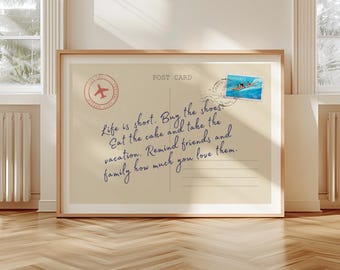 POST CARD
Life is short. Buy the shoes
Eat the cake and take the
vacation. Remind friends and
family how much you love them.